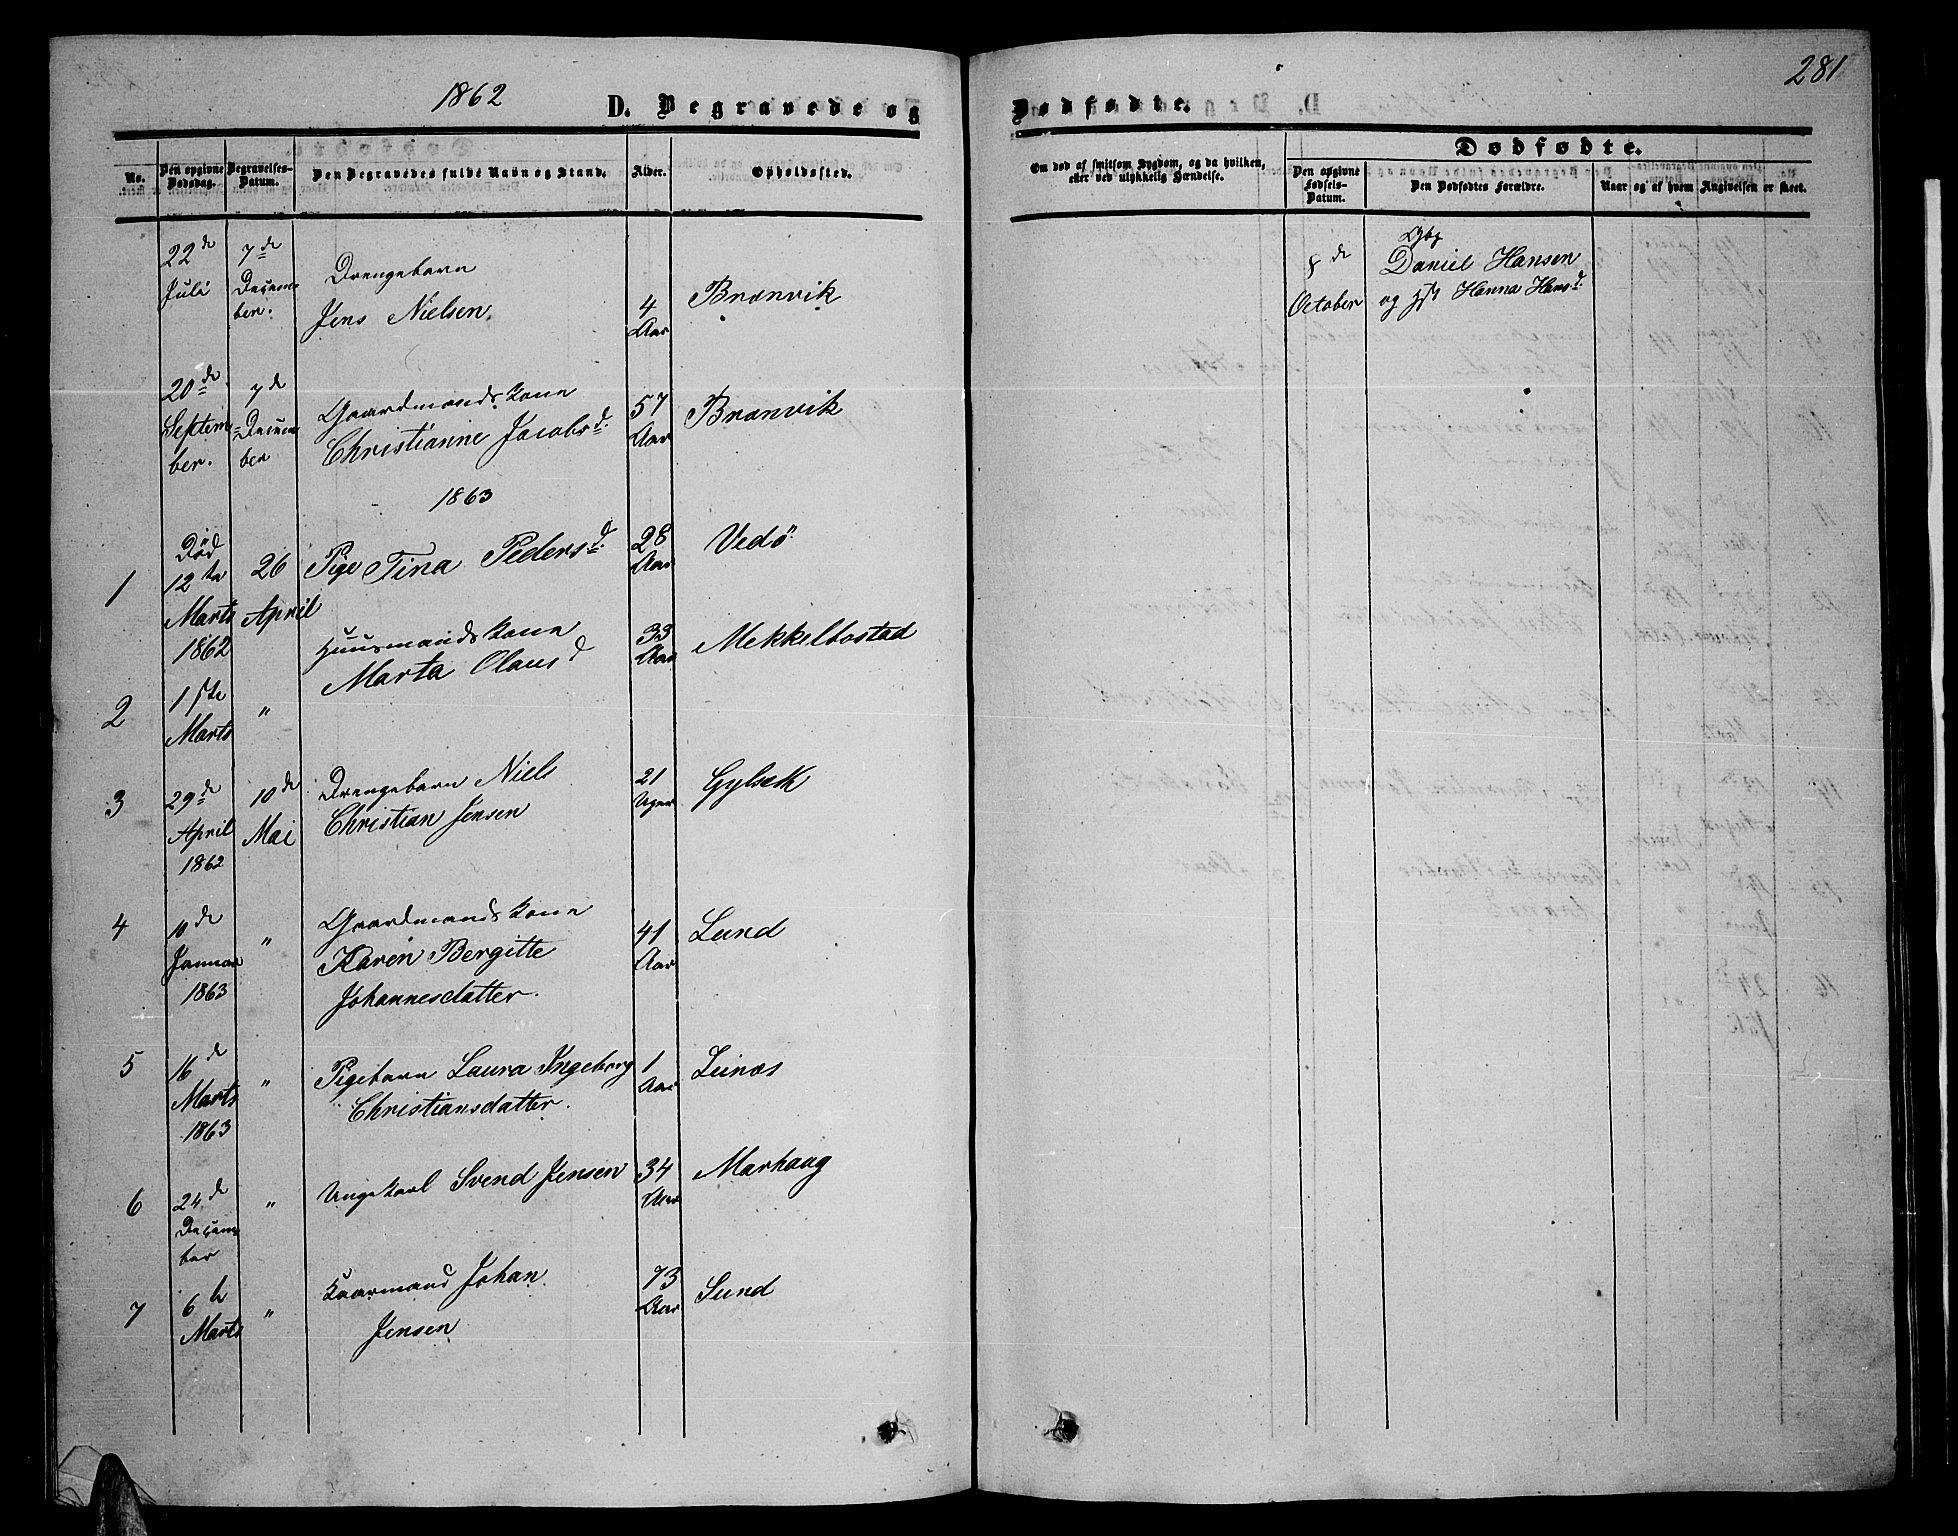 281
1862
D. Begravede og
Dødfødte.
No.
Den opgivne Dødsdag.
Begravelses-Datum.
Den Begravedes fulde Navn og Stand.
Alder.
Opholdssted.
Om død af smitsom Sygdom, og da hvilken,
eller ved ulykkelig Hændelse.
Dødfødte.
Den opgivne Fødsels-Datum.
Den Dødfødtes Forældre.
Naar og af hvem Angivelsen er skeet.
22de Juli
7de December.
Drengebarn
Jens Nielsen.
4 Aar
Brænvik
8de October
Daniel Hansen
og Hanna Hansd.
20de September.
7de December
Gaardmandskone
Christianne Jacobsd.
57 Aar
Brænvik
1863
1
Død 12te Marts 1862
26 April
Pige Tina Pedersd.
28 Aar
Vedö
2
1ste Marts
"
Huusmandskone
Marta Olausd
33 Aar
Mekkelbostad
3
29de April 1862
10de Mai
Drengebarn Niels
Christian Jensen
21 Uger
Gylsæk
4
10de Januar 1863
"
Gaardmandskone
Karen Bergitte
Johannesdatter.
41 Aar
Lund
5
16de Marts 1863
"
Pigebarn Laura Ingeborg
Christiansdatter.
1 Aar
Leinæs
6
24de December
"
Ungekarl Svend Jensen
34 Aar
Marhaug
7
6te Marts
"
Kaarmand Johan
Jensen
73 Aar
Lund